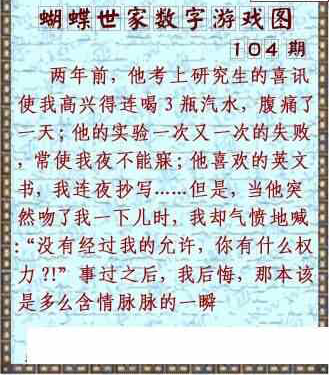 蝴蝶世家数字游戏图
104期
两年前，他考上研究生的喜讯
使我高兴得连喝3瓶汽水，腹痛了
一天；他的实验一次又一次的失败
，常使我夜不能寐；他喜欢的英文
书，我连夜抄写……但是，当他突
然吻了我一下儿时，我却气愤地喊
:“没有经过我的允许，你有什么权
力?!”事过之后，我后悔，那本该
是多么含情脉脉的一瞬